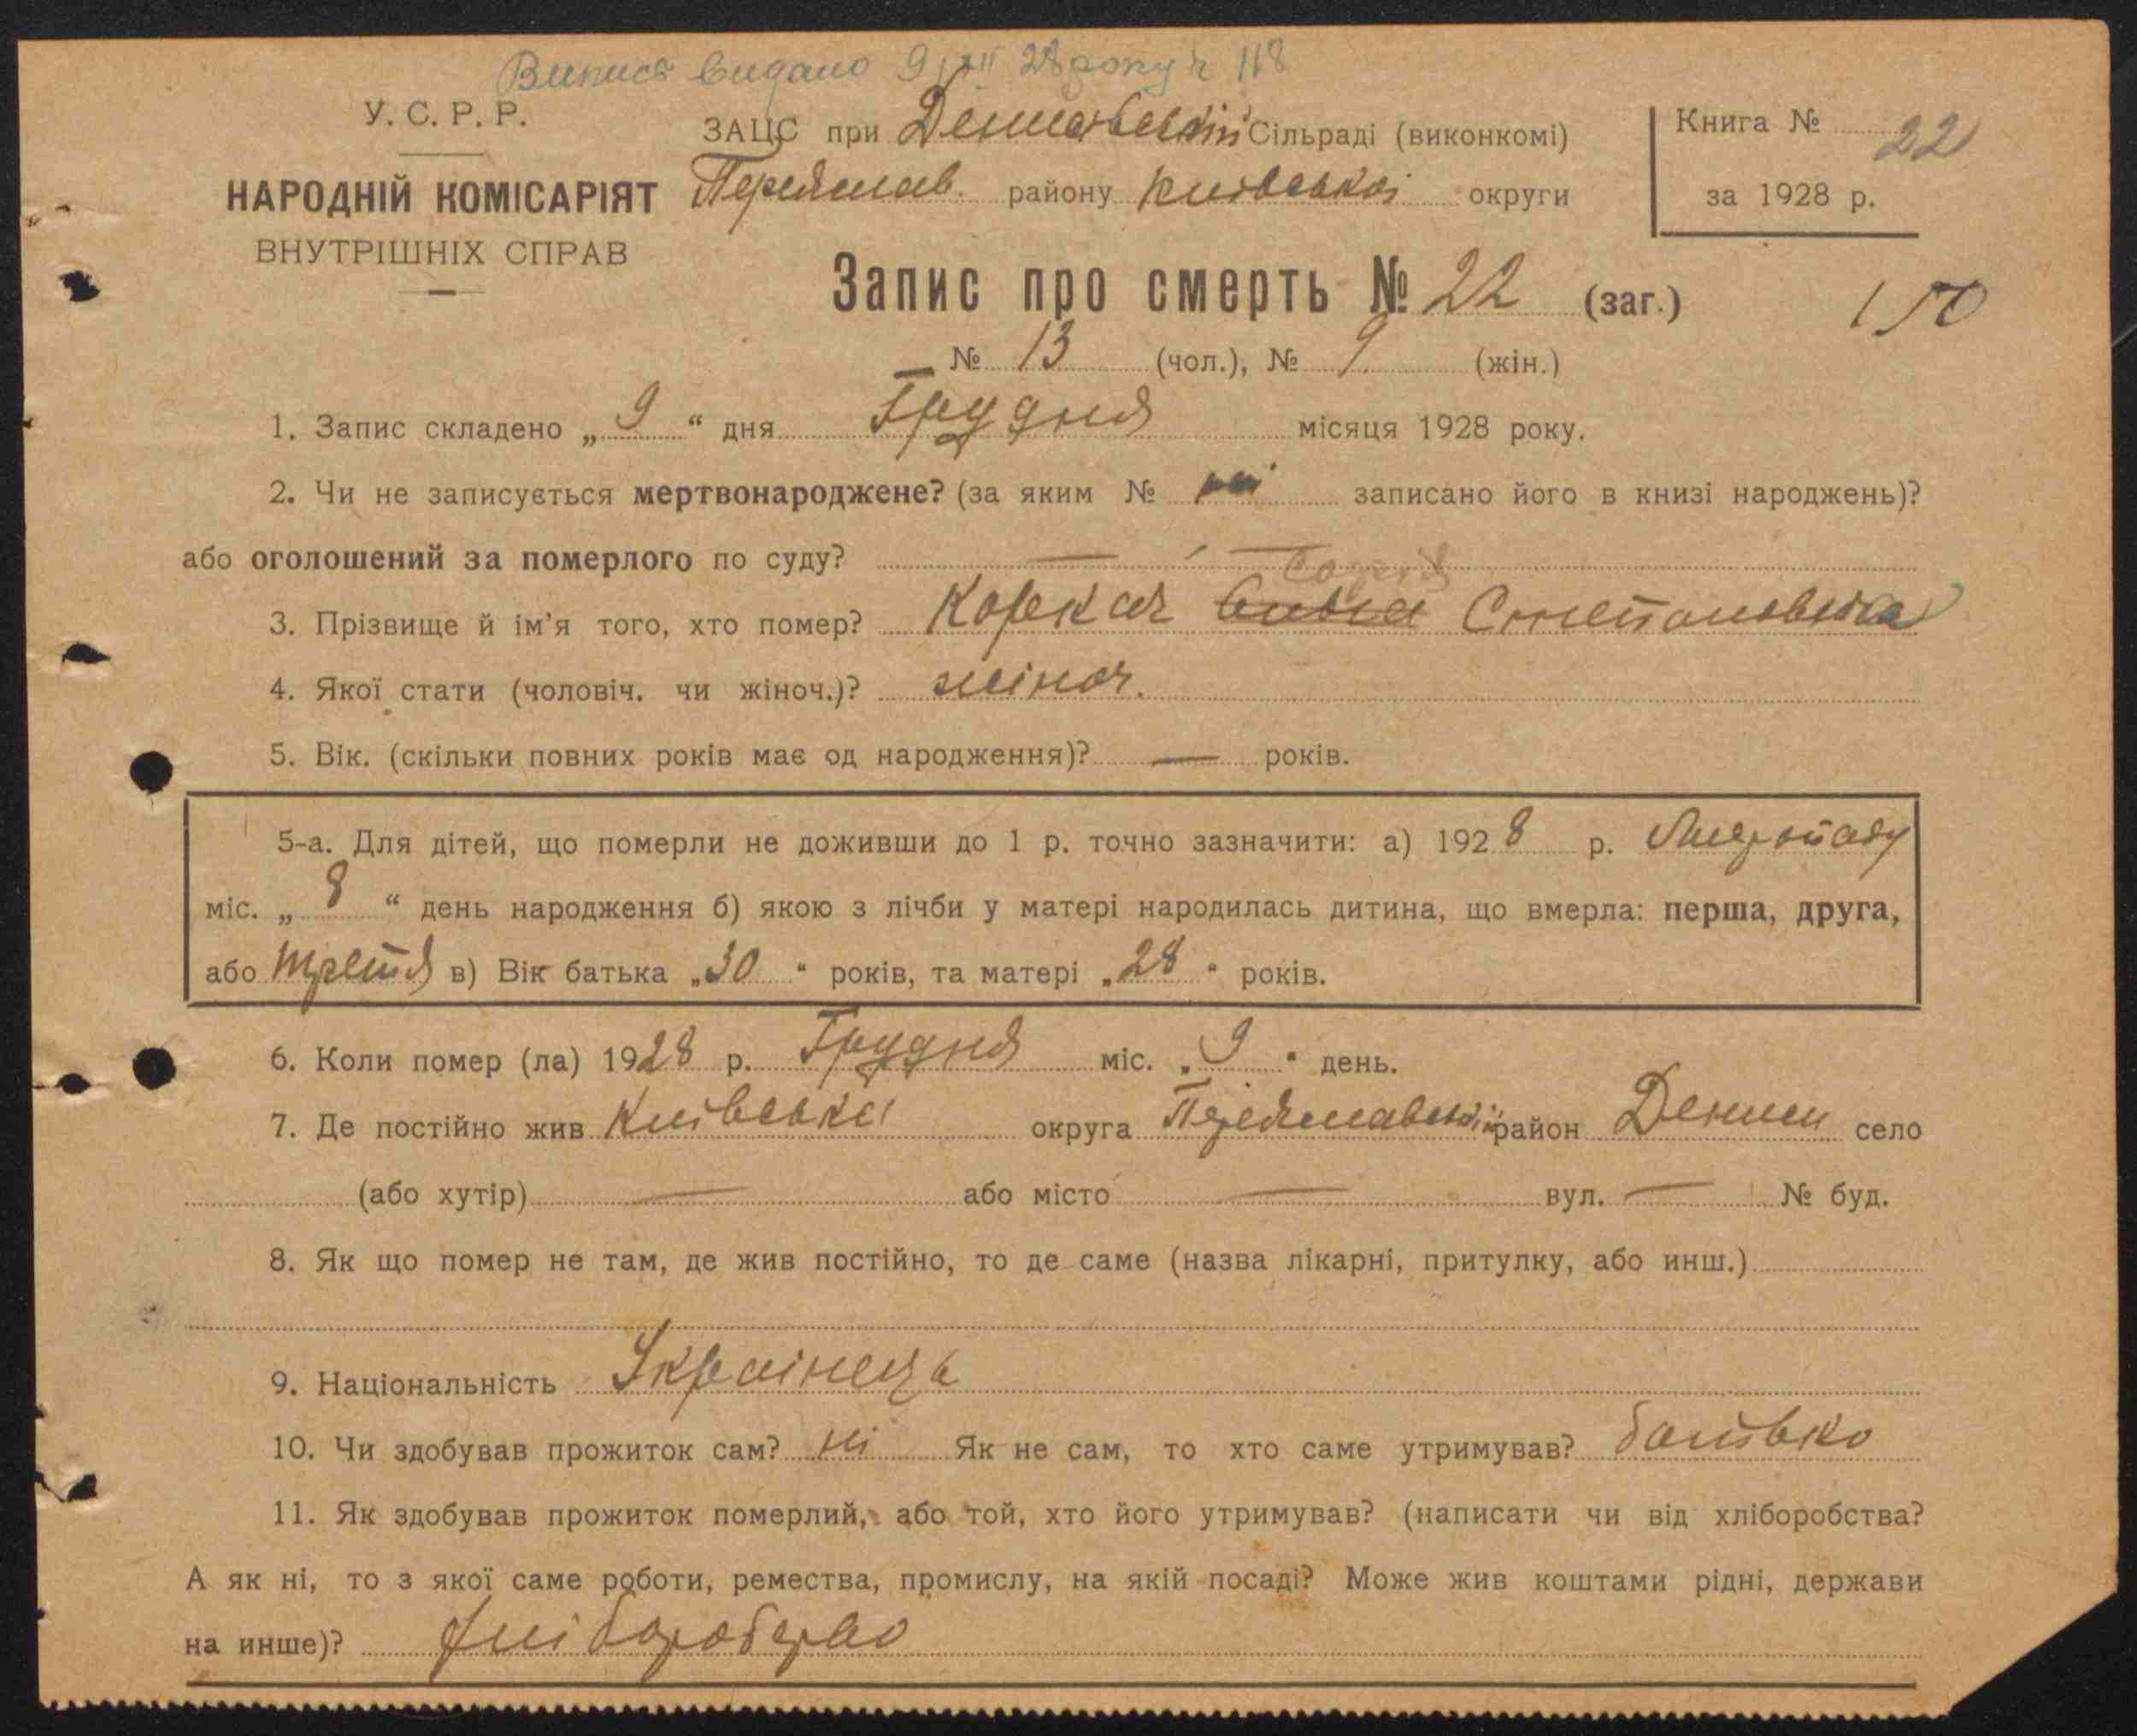 Випись видано 9/XII 28 року № 118
У. С. Р. Р.
НАРОДНІЙ КОМІСАРІЯТ
ВНУТРІШНІХ СПРАВ
ЗАЦС при Сільраді (виконкомі)
Переяслав. району Київської округи
Книга № 22
за 1928 р.
Запис про смерть № 22 (заг.)
150
№ 13 (чол.), № 9 (жін.)
1. Запис складено „ 9 “ дня Грудня місяця 1928 року.
2. Чи не записується мертвонароджене? (за яким № ні записано його в книзі народжень)?
або оголошений за померлого по суду? — —
3. Прізвище й ім'я того, хто помер? Коркач Степановна
4. Якої стати (чоловіч. чи жіноч.)? жіноч.
5. Вік. (скільки повних років має од народження)? — років.
5-а. Для дітей, що померли не доживши до 1 р. точно зазначити: а) 1928 р. Листопаду
міс. „ 8 “ день народження б) якою з лічби у матері народилась дитина, що вмерла: перша, друга,
або третя в) Вік батька „30 “ років, та матері „28 “ років.
6. Коли помер (ла) 1928 р. Грудня міс. „ 9 “ день.
7. Де постійно жив Київська округа Переяславський район Дениси село
(або хутір) — або місто — вул. — № буд.
8. Як що помер не там, де жив постійно, то де саме (назва лікарні, притулку, або инш.)
9. Національність Українець
10. Чи здобував прожиток сам? ні Як не сам, то хто саме утримував? батько
11. Як здобував прожиток померлий, або той, хто його утримував? (написати чи від хліборобства?
А як ні, то з якої саме роботи, ремества, промислу, на якій посаді? Може жив коштами рідні, держави
на инше)? хліборобство